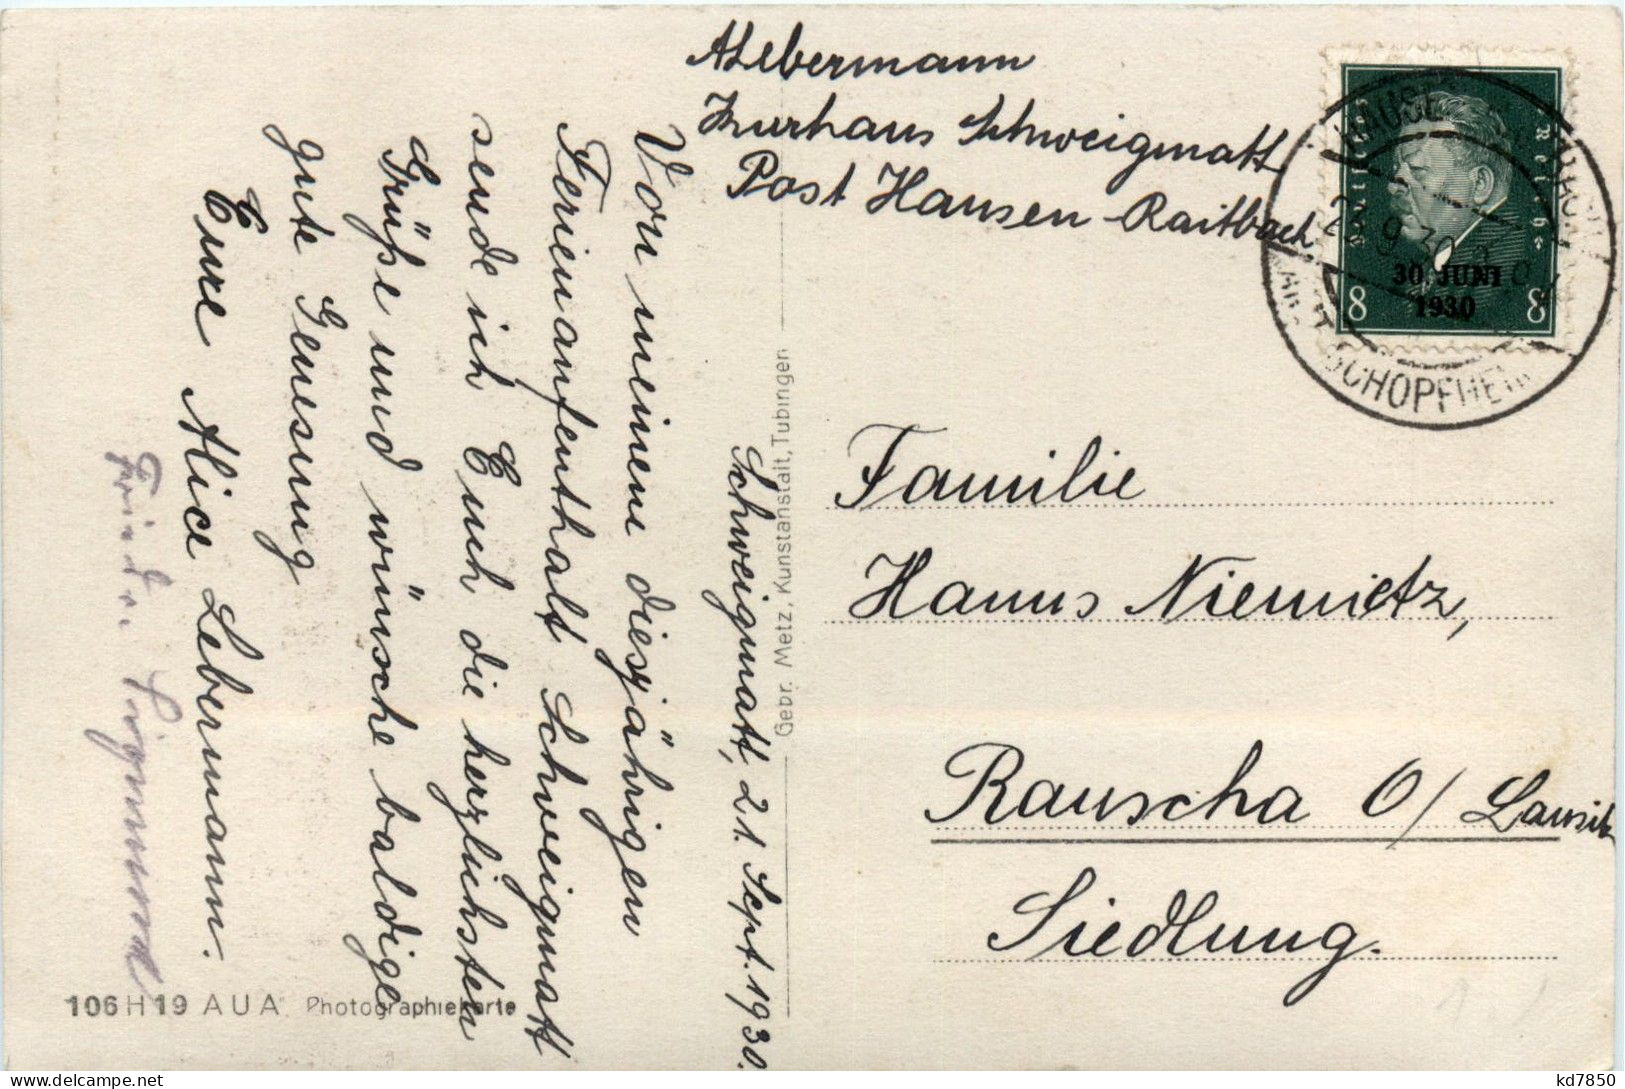 ALebermann
Kurhaus Schweigmatt
Post Hausen-Raitbach
Schweigmatt, 21. Sept. 1930.
Von meinem diesjährigen
Ferienaufenthalt Schweigmatt
sende ich Euch die herzlichsten
Grüße und wünsche baldige
gute Genesung
Eure Alice Lebermann.
Familie
Hanns Niemietz,
Rauscha O/Lausitz
Siedlung.
Gebr. Metz, Kunstanstalt, Tübingen
106 H 19 AUA Photographiekarte
Deutsches Reich
30. JUNI
1930
8 8
HAUSEN
SCHOPFHEIM
kd7850